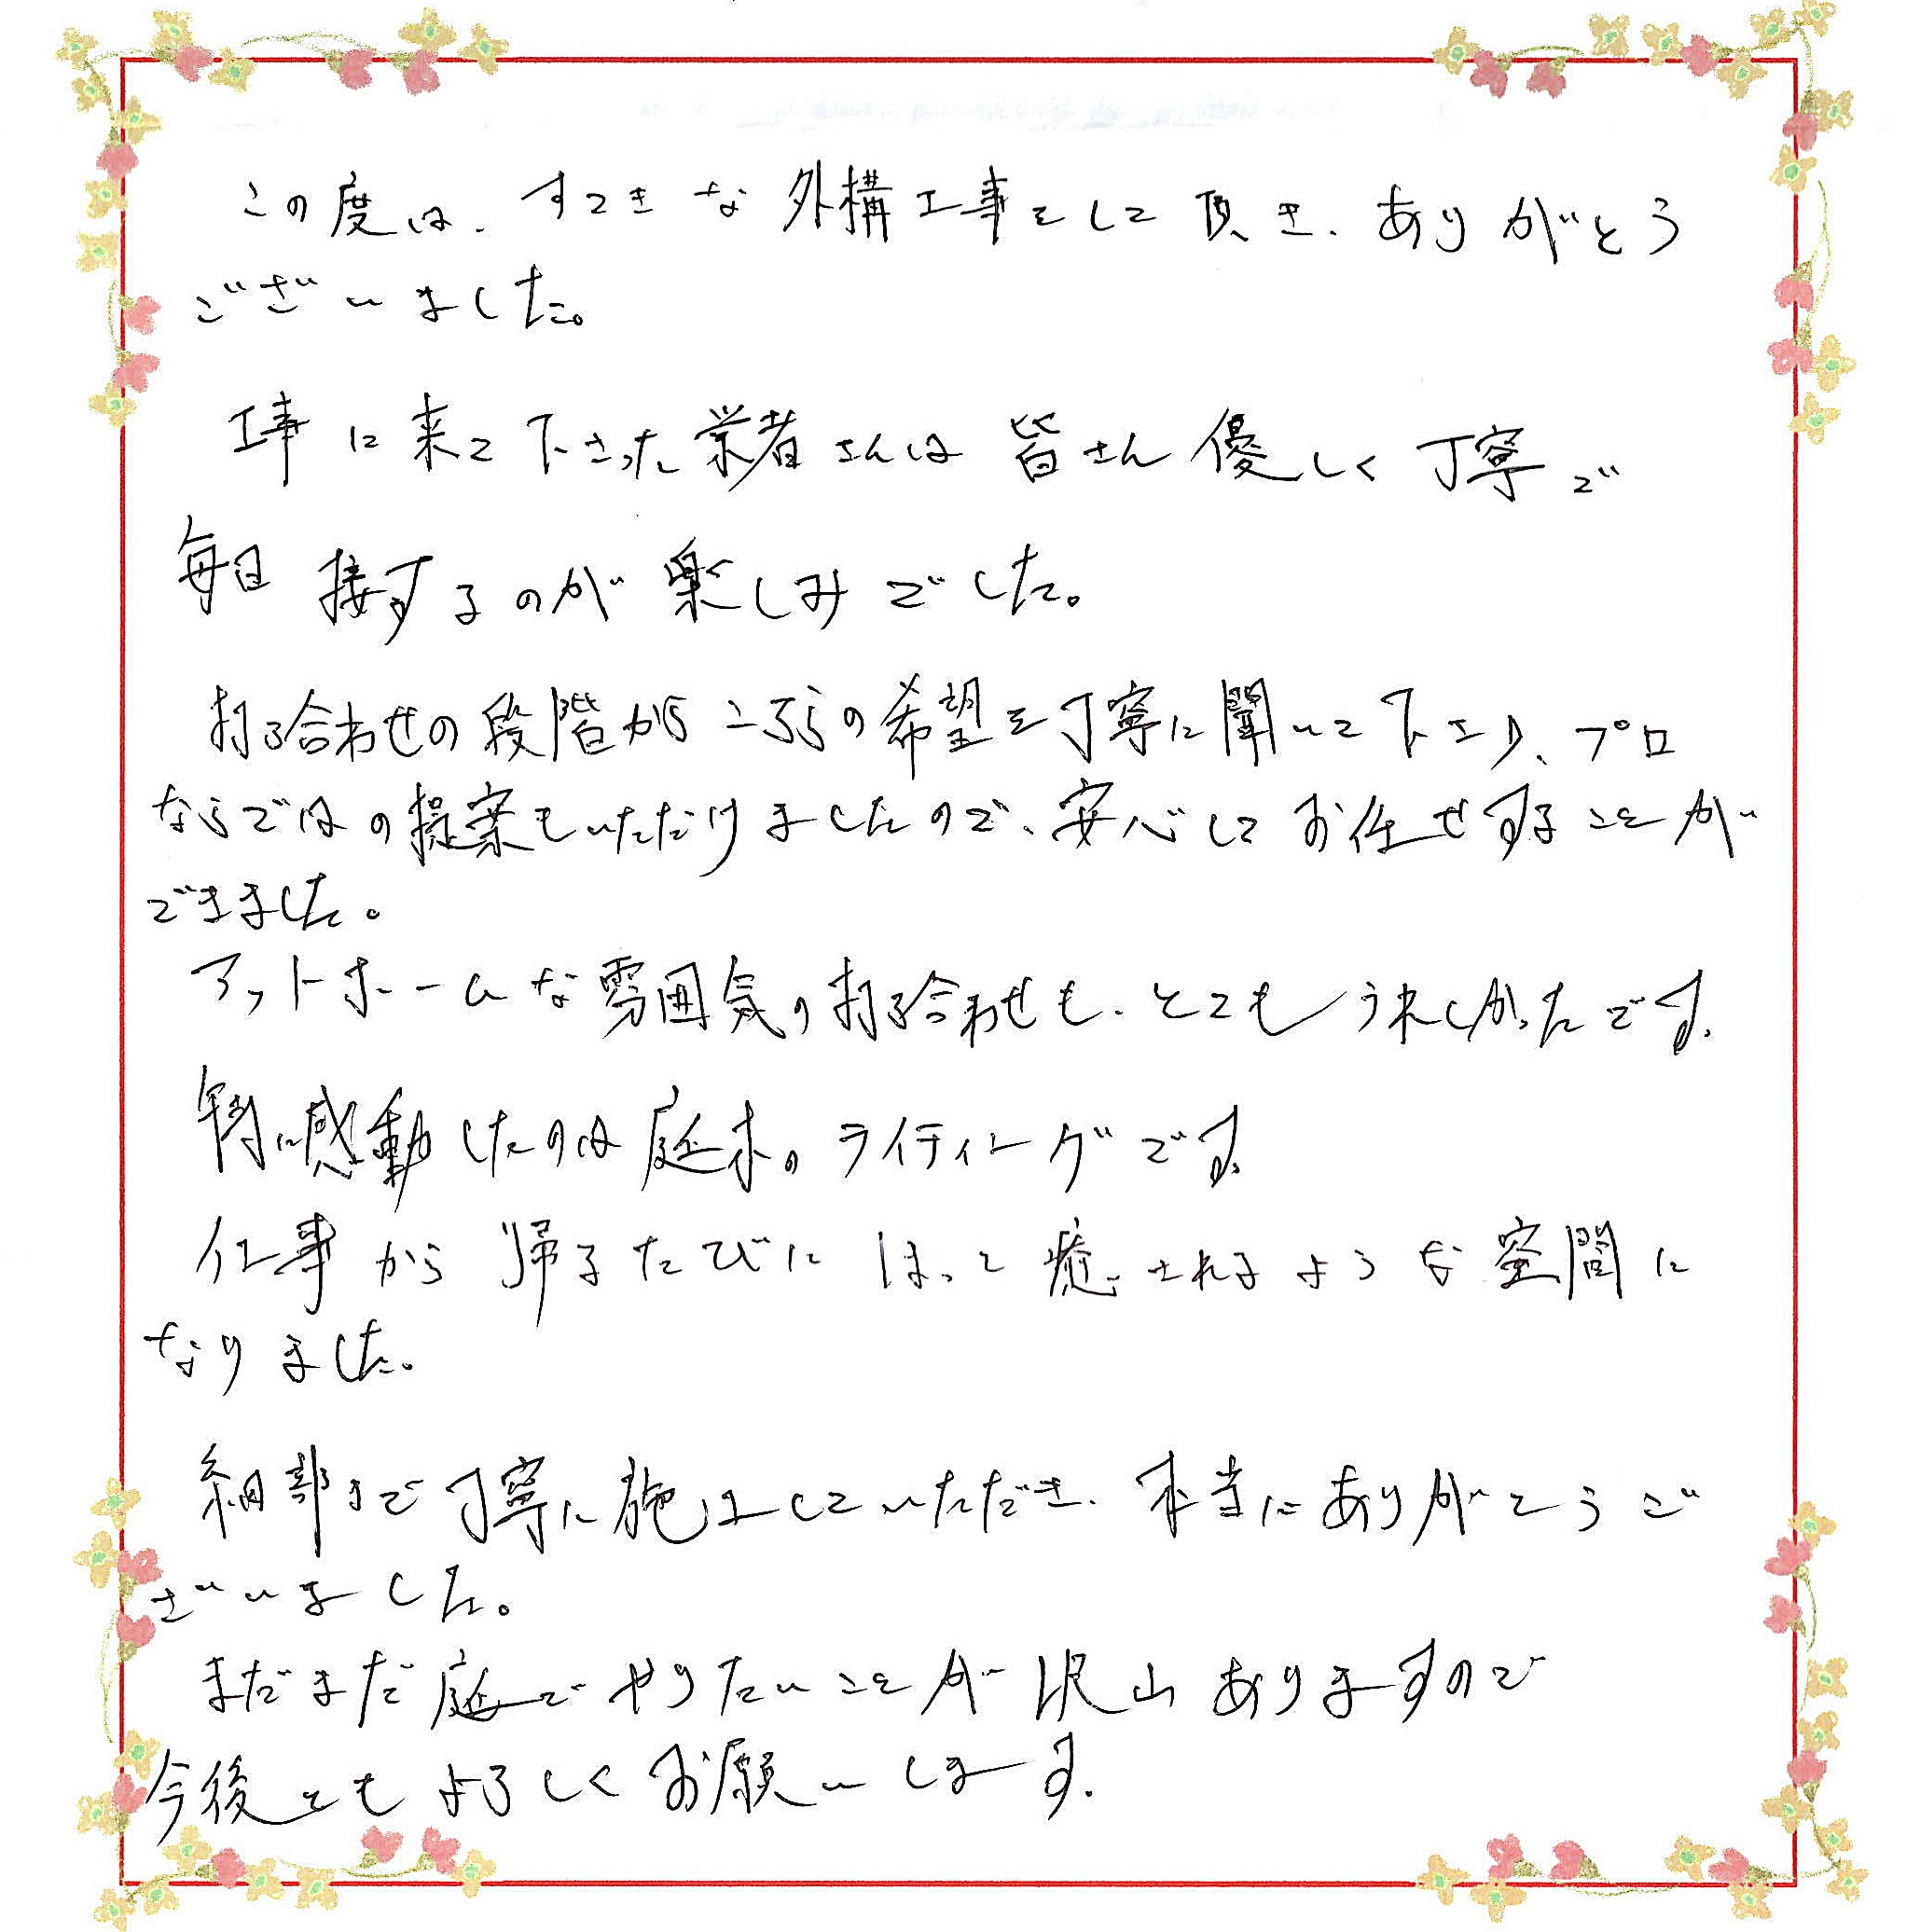 この度は、すてきな外構工事をして頂き、ありがとう
ございました。
工事に来て下さった業者さんは皆さん優しく丁寧で
毎日接するのが楽しみでした。
打ち合わせの段階からこちらの希望を丁寧に聞いて下さり、プロ
ならではの提案もいただけましたので、安心してお任せすることが
できました。
アットホームな雰囲気の打ち合わせも、とてもうれしかったです。
特に感動したのは庭木のライティングです。
仕事から帰るたびにほっと癒されるような空間に
なりました。
細部まで丁寧に施工していただき、本当にありがとうご
ざいました。
まだまだ庭でやりたいことが沢山ありますので
今後ともよろしくお願いします。